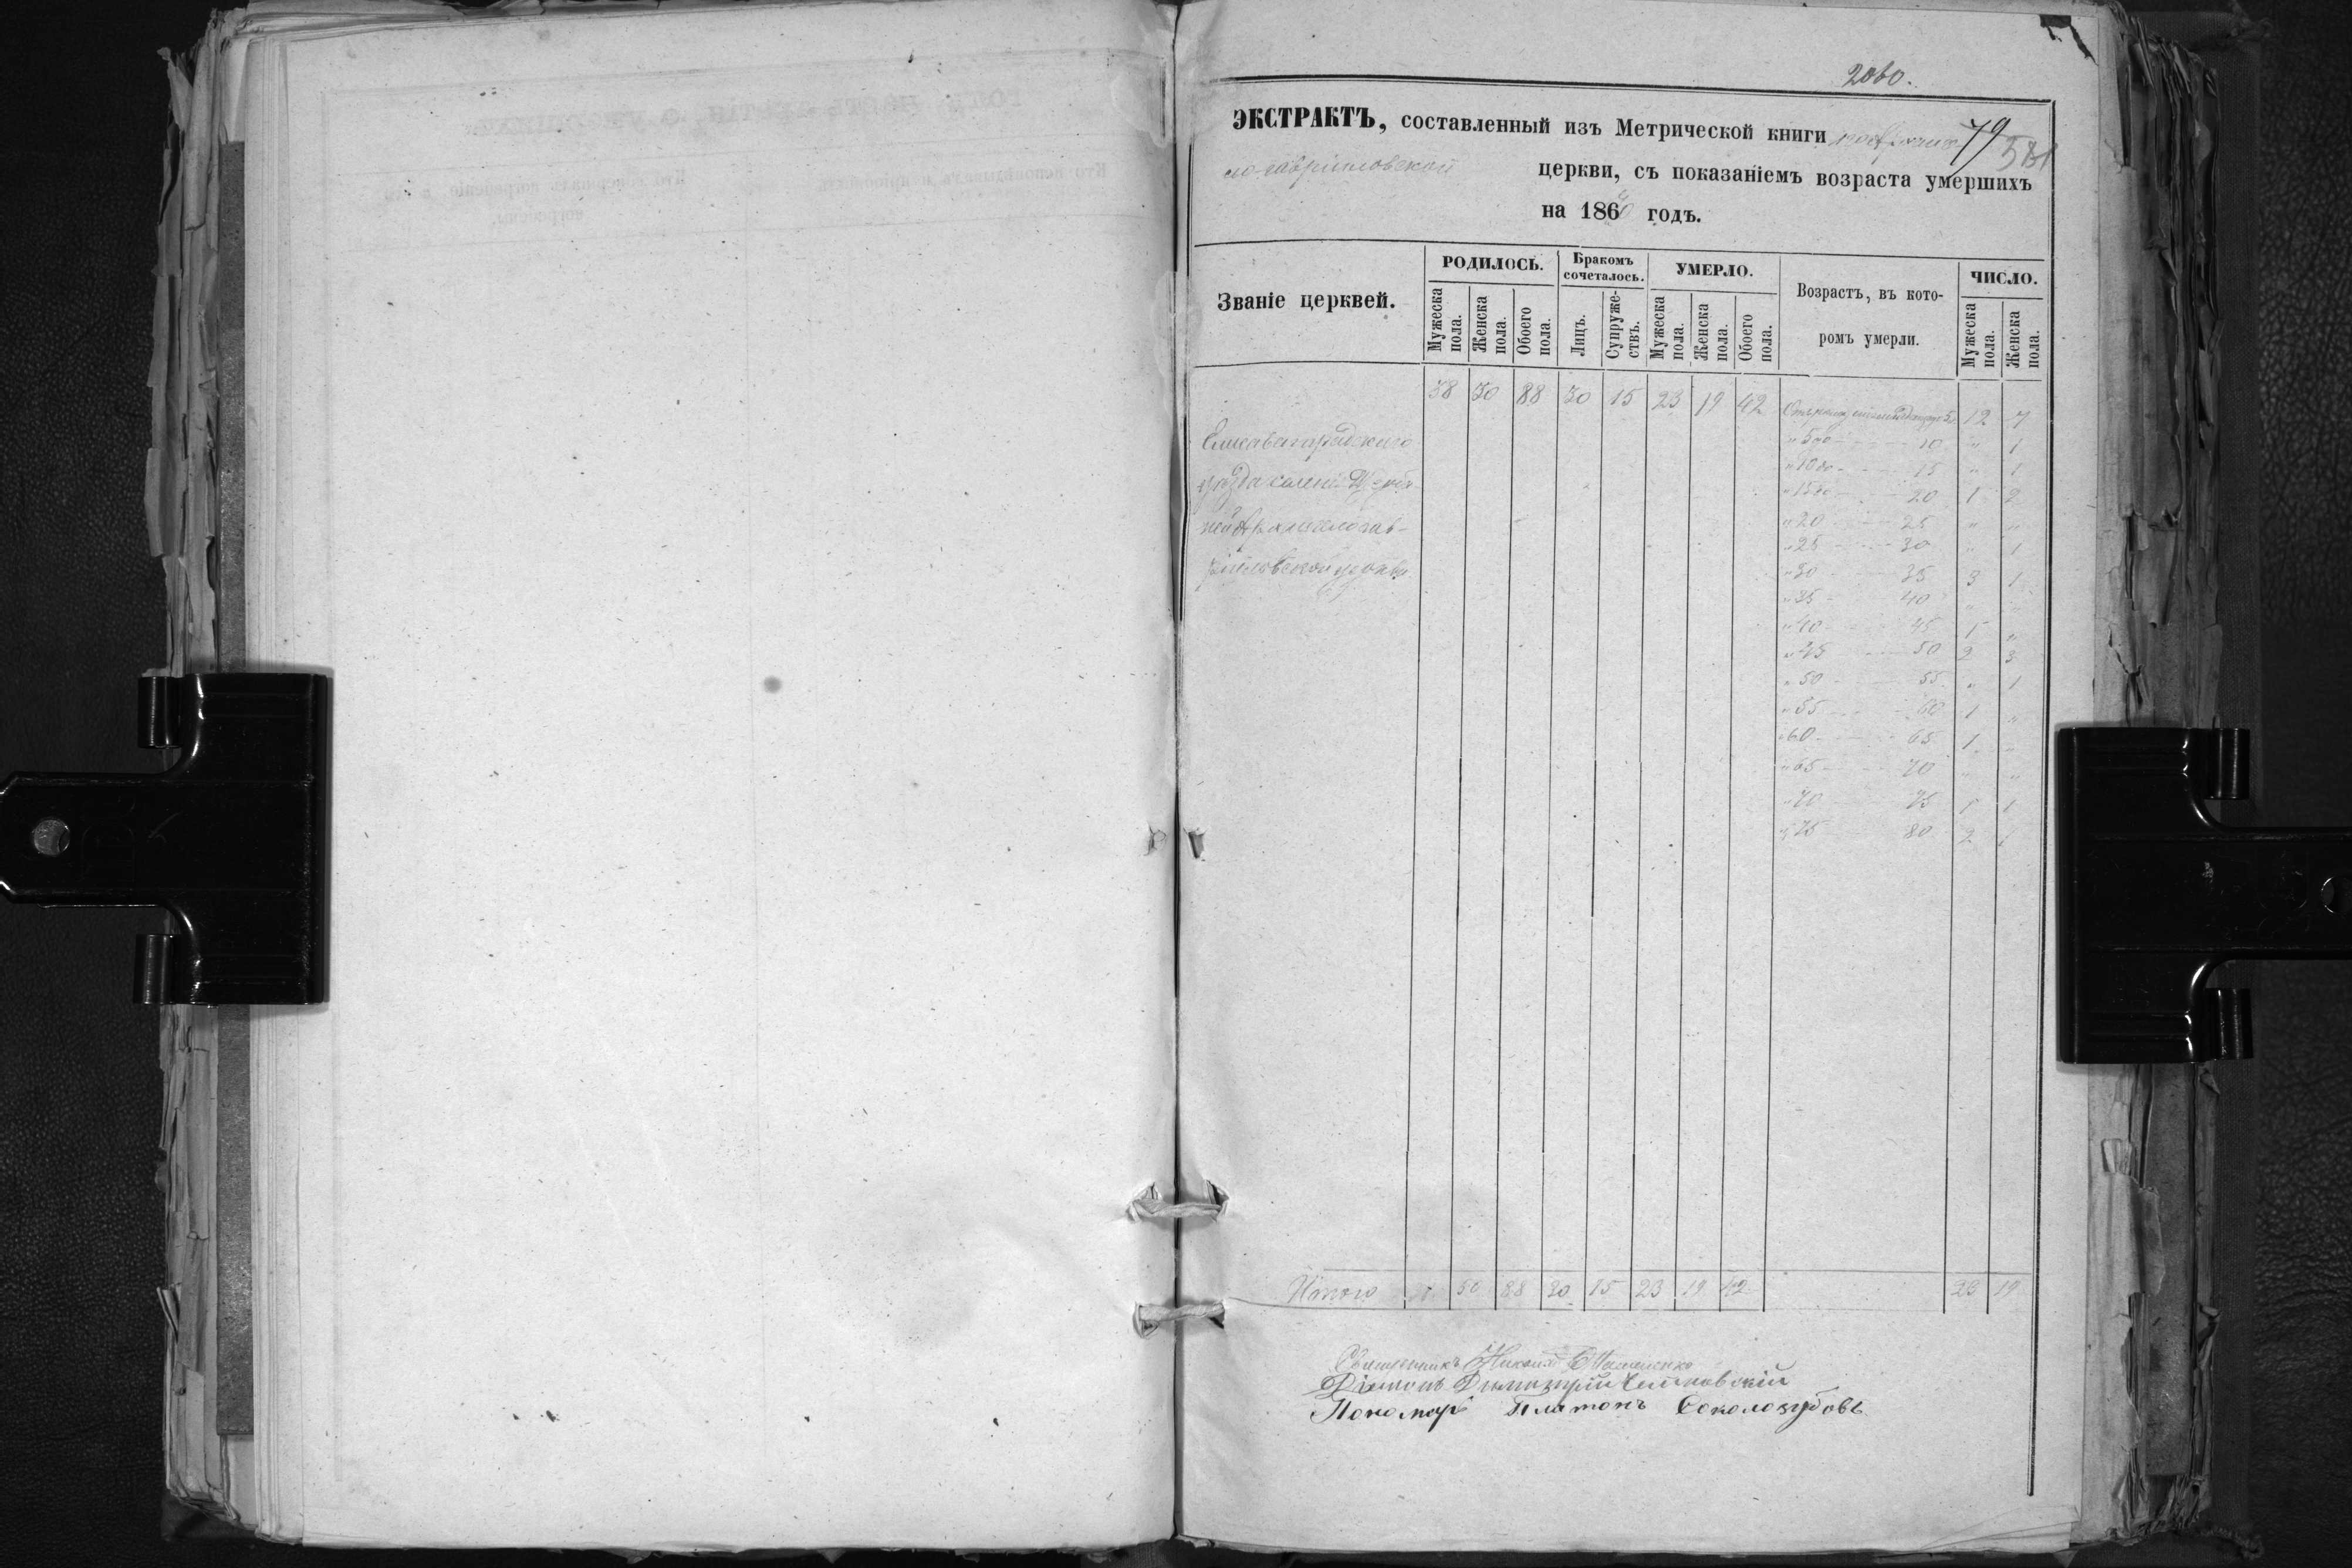 2060.
ЭКСТРАКТЪ, составленный изъ Метрической книги 79
логавріиловской церкви, съ показаніемъ возраста умершихъ
на 186 годъ.
Званіе церквей.
РОДИЛОСЬ.
Мужеска пола.
Женска пола.
Обоего пола.
Бракомъ сочеталось.
Лицъ.
Супруже-ствъ.
УМЕРЛО.
Мужеска пола.
Женска пола.
Обоего пола.
Возрастъ, въ кото-
ромъ умерли.
ЧИСЛО.
Мужеска пола.
Женска пола.
88 30 15 23 19 42 12 7
Елисаветградскаго
уѣзда
Архангелогав-
ріиловской церкви
" 5 до 10 " 1
" 10 до 15 " 1
" 15 до 20 1 2
" 20 25 " "
" 25 30 " 1
" 30 35 3 1
" 35 40 " "
" 40 45 1 "
" 45 50 2 3
" 50 55 " 1
" 55 60 1 "
" 60 65 1 "
" 65 70 " "
" 70 75 1 1
" 75 80 2 1
Итого 50 88 30 15 23 19 42 23 19
Священникъ
Діаконъ Димитрій
Пономарь Платонъ Соколозубовъ